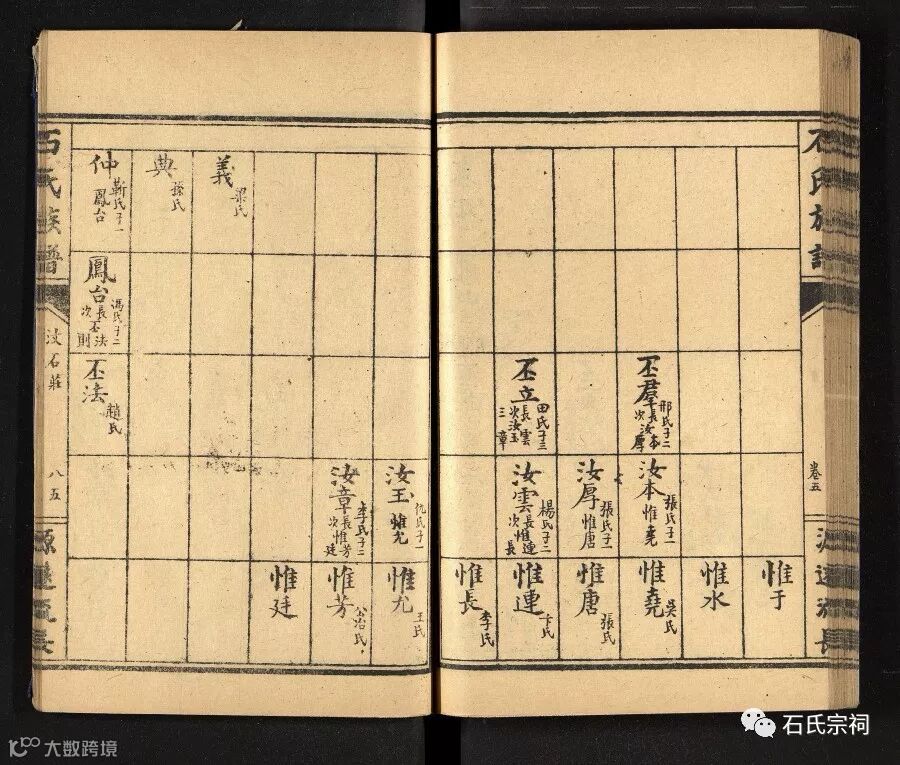 石氏族譜
卷五
源遠流長
惟于
惟水
丕羣
邢氏子二
長汝本
次汝厚
汝本
張氏子一
惟堯
惟堯
吳氏
汝厚
張氏子一
惟唐
惟唐
張氏
丕立
田氏子三
長雲
次汝玉
三章
汝雲
楊氏子二
長惟連
次長
惟連
卞氏
惟長
李氏
汝玉
仇氏子一
惟允
惟允
王氏
汝章
李氏子二
長惟芳
次惟廷
惟芳
公冶氏
惟廷
義
梁氏
典
孫氏
仲
靳氏子一
鳳台
鳳台
馮氏子二
長丕法
次則
丕法
趙氏
石氏族譜
汶石莊
八五
源遠流長
石氏宗祠
大数跨境